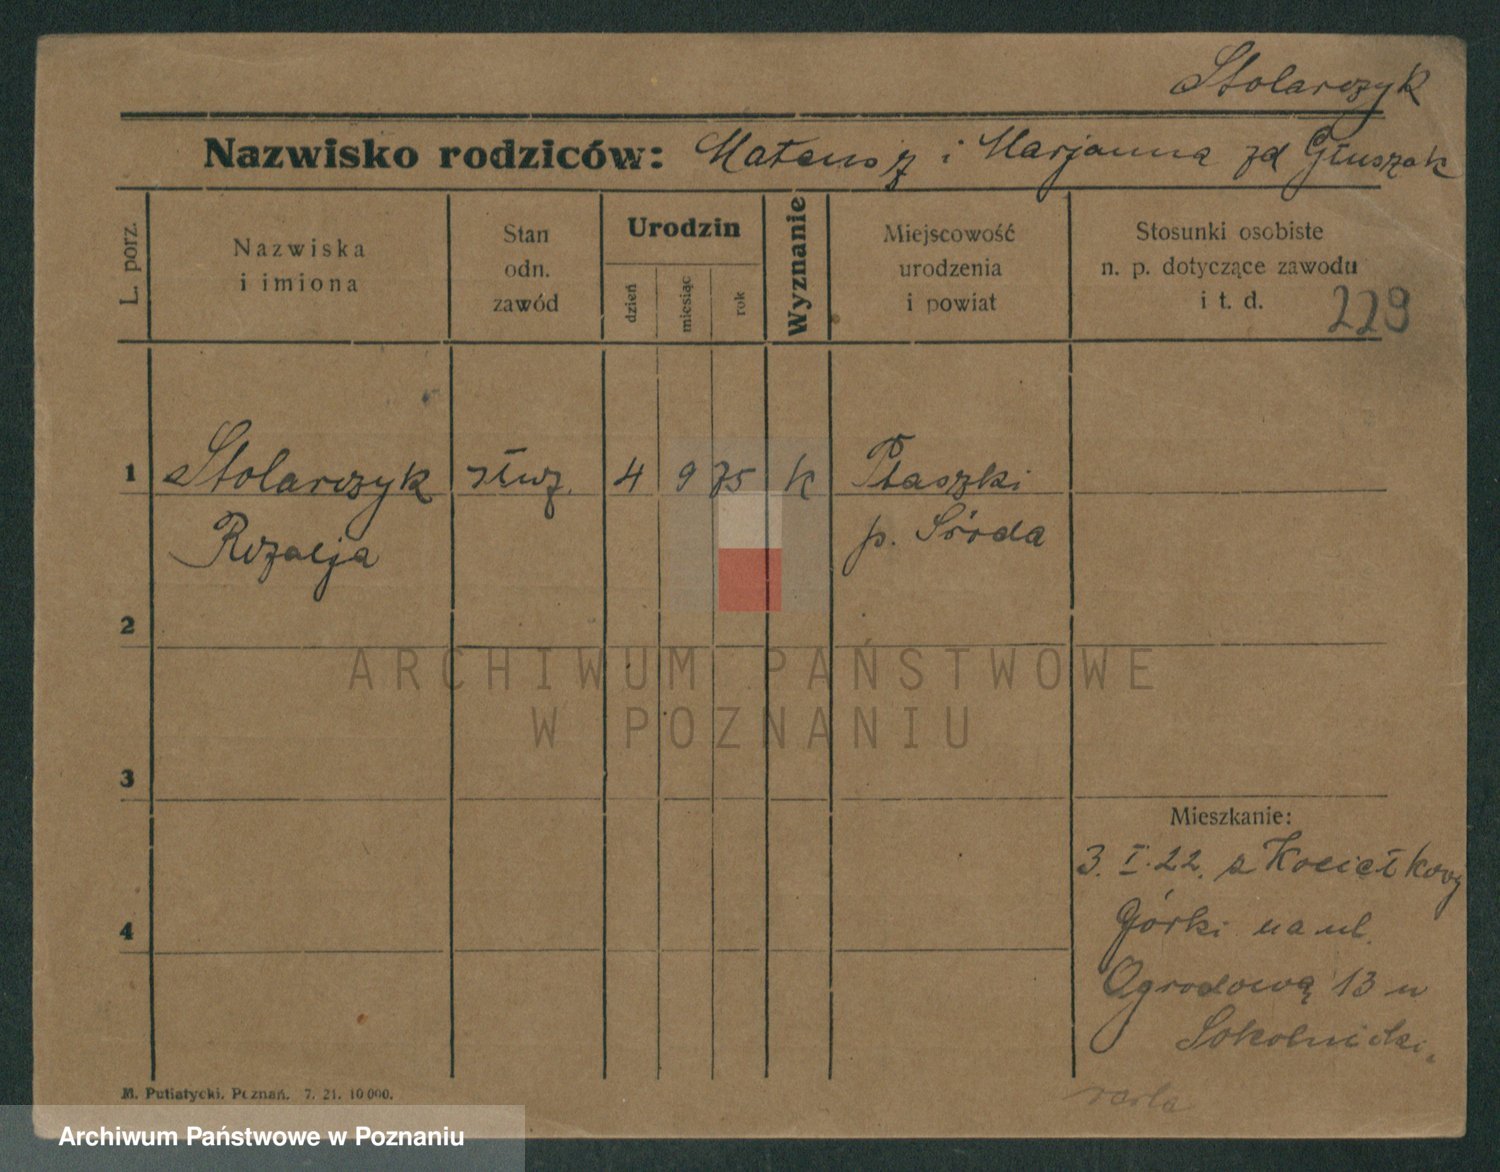 Stolarczyk
Nazwisko rodziców: Mateusz i Marjanna zd Głuszak
L. porz.
Nazwiska
i imiona
Stan
odn.
zawód
Urodzin
dzień
miesiąc
rok
Wyznanie
Miejscowość
urodzenia
i powiat
Stosunki osobiste
n. p. dotyczące zawodu
i t. d.
229
1 Stolarczyk służ. 4 9 75 k Płaszki
Rozalja p. Środa
2
ARCHIWUM PAŃSTWOWE
W POZNANIU
3
Mieszkanie:
3. I. 22. z Kociałkowy
Górki na ul.
4
Ogrodową 13 u
Sokolnicki
M. Putiatycki. Poznań. 7. 21. 10 000.
Archiwum Państwowe w Poznaniu